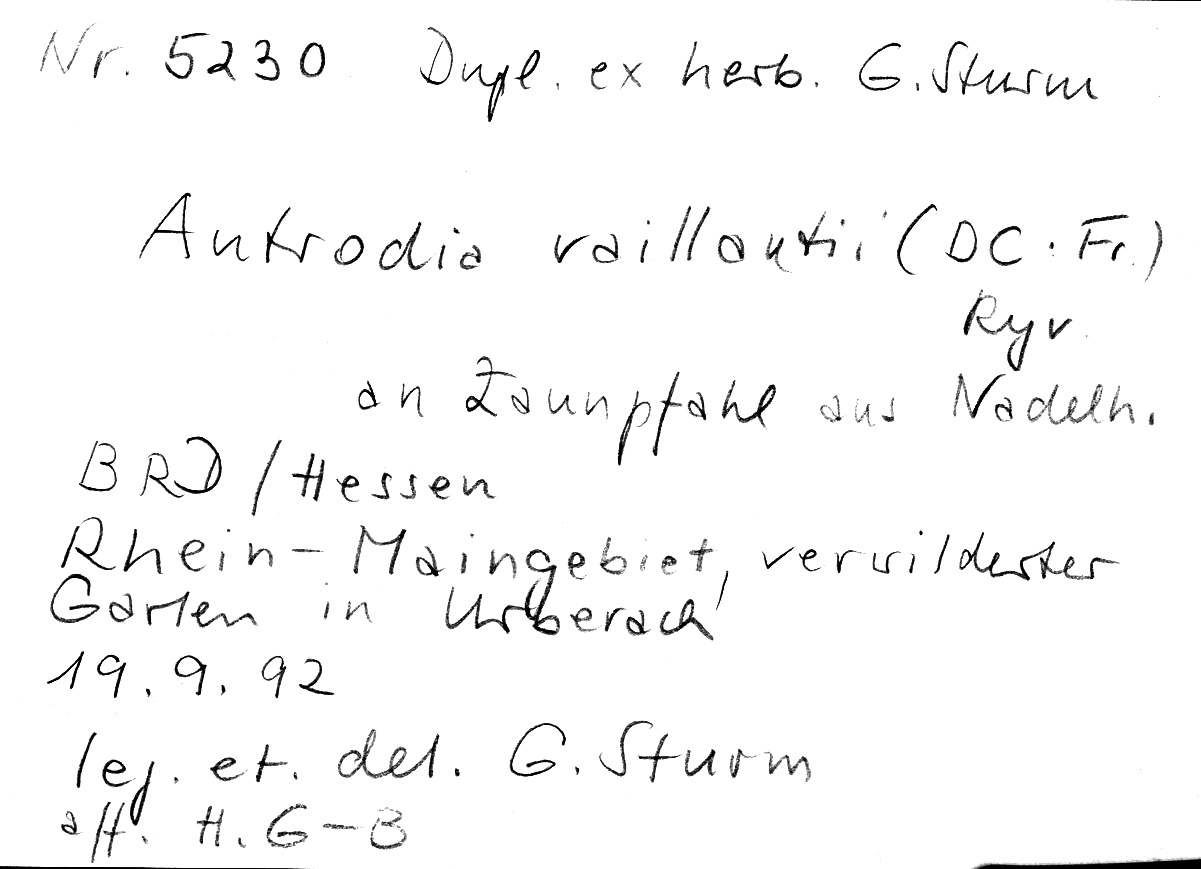 Nr. 5230 Dupl. ex herb. G. Sturm
Antrodia vaillantii (DC: Fr.)
Ryv.
an Zaunpfahl aus Nadelh.
BRD / Hessen
Rhein-Maingebiet, verwilderter
Garten in Urberach
19.9.92
leg. et. det. G. Sturm
aff. H. G-B